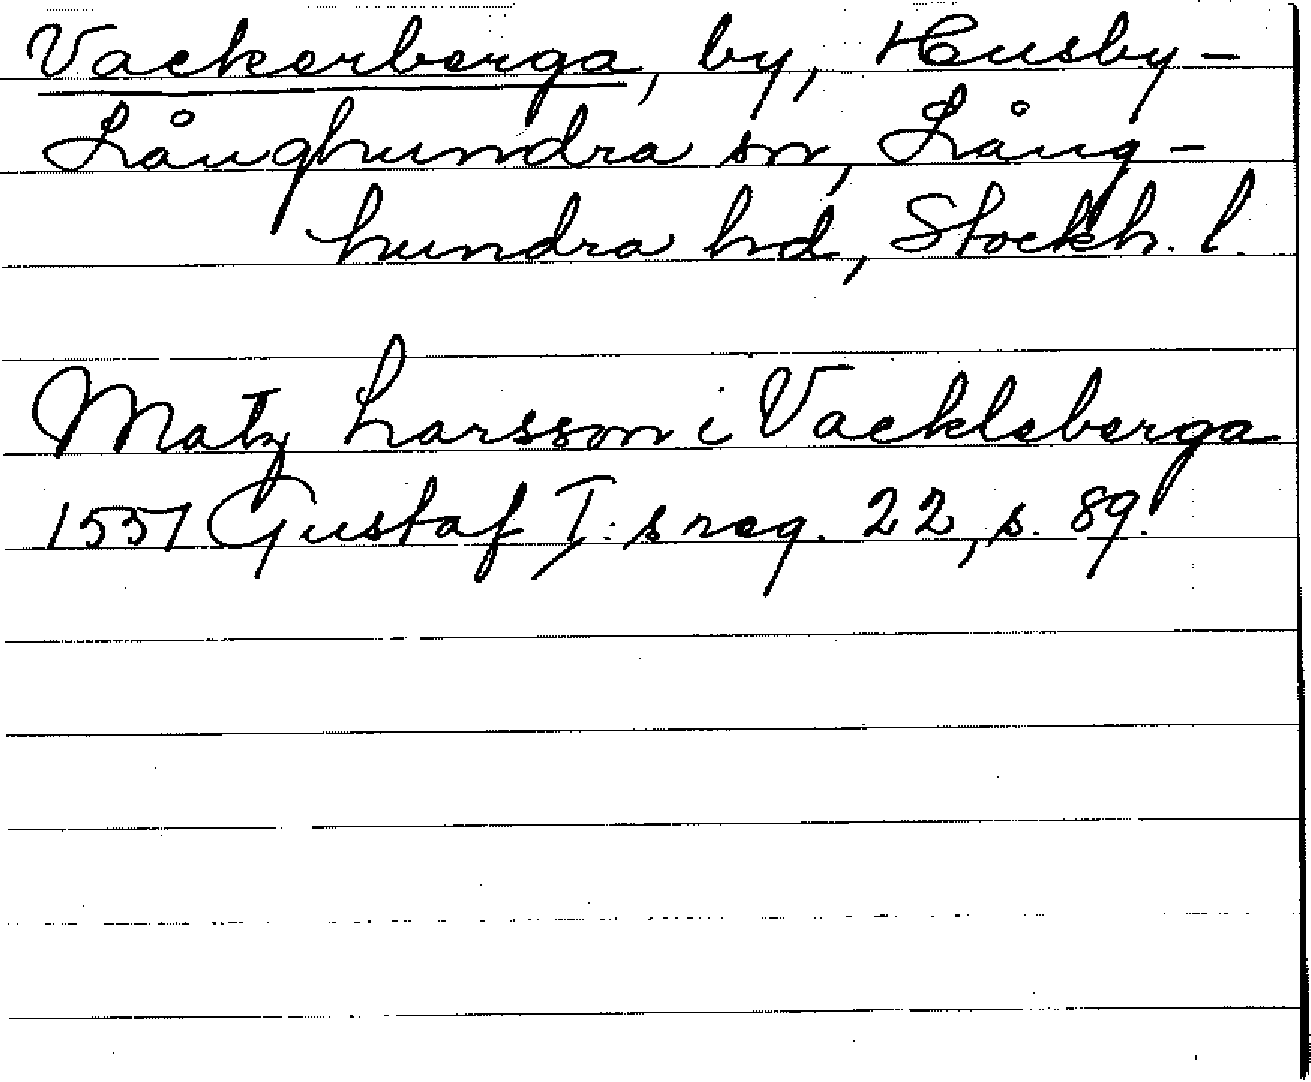 Vackerberga, by, Husby-
Långhundra sn, Lång-
hundra hd, Stockh. l.
Matz Larsson i Vackleberga
1551 Gustaf I:s reg. 22, s. 89.